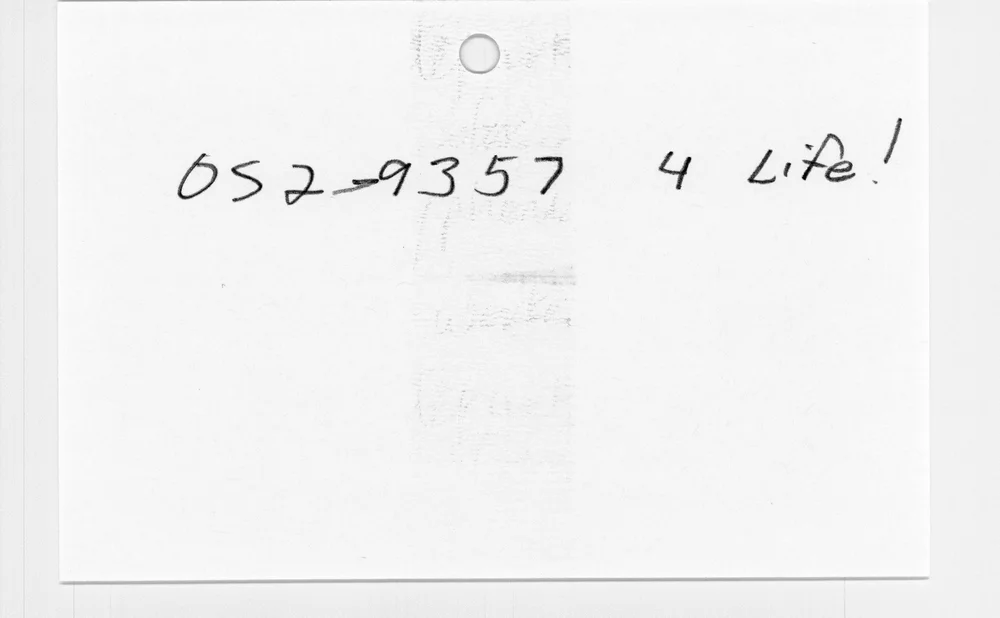 052-9357 4 Life!